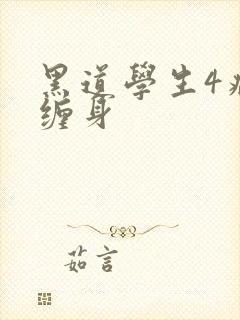 黑道學生4病
缠身
茹言